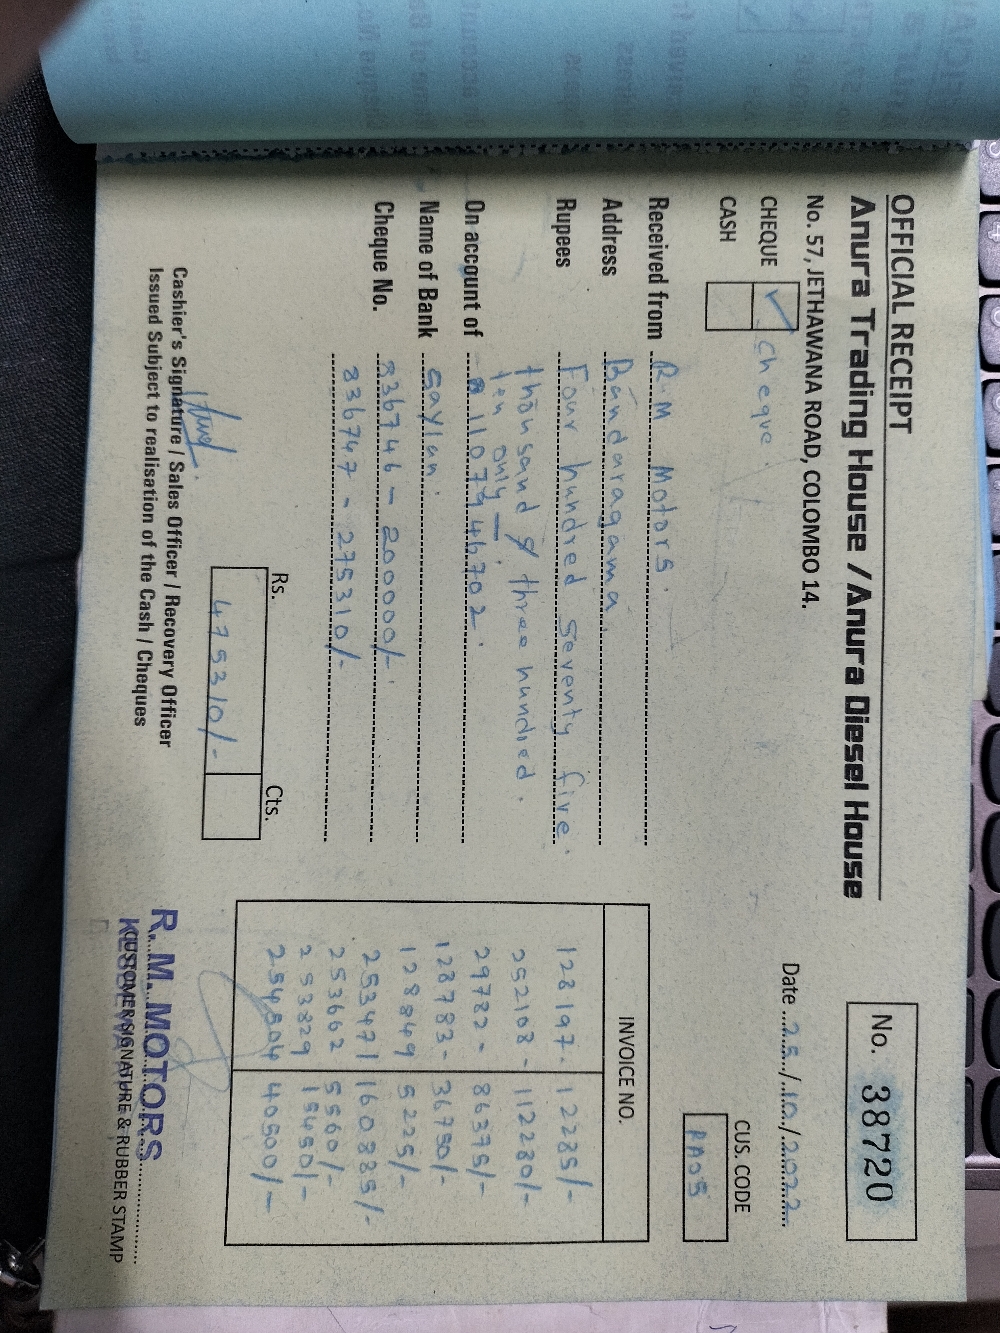 OFFICIAL RECEIPT
Anura Trading House / Anura Diesel House
No. 57, JETHAWANA ROAD, COLOMBO 14.
No. 38720
Date 25/10/2022
CHEQUE ✓ cheque.
CASH
CUS. CODE
RA05
Received from R.M Motors.
Address Bandaragama.
Rupees Four hundred seventy five.
thousand & three hundred.
ten only —.
On account of 1107946702.
Name of Bank Saylan.
Cheque No. 836746 - 200000/-
836747 - 275310/-
Rs. Cts.
475310/-
Cashier's Signature / Sales Officer / Recovery Officer
Issued Subject to realisation of the Cash / Cheques
INVOICE NO.
128197- 12285/-
252108- 112280/-
29782- 86375/-
128783- 36750/-
128849 5225/-
253471 160885/-
253662 5560/-
253829 15450/-
254504 40500/-
R. M. MOTORS
CUSTOMER SIGNATURE & RUBBER STAMP